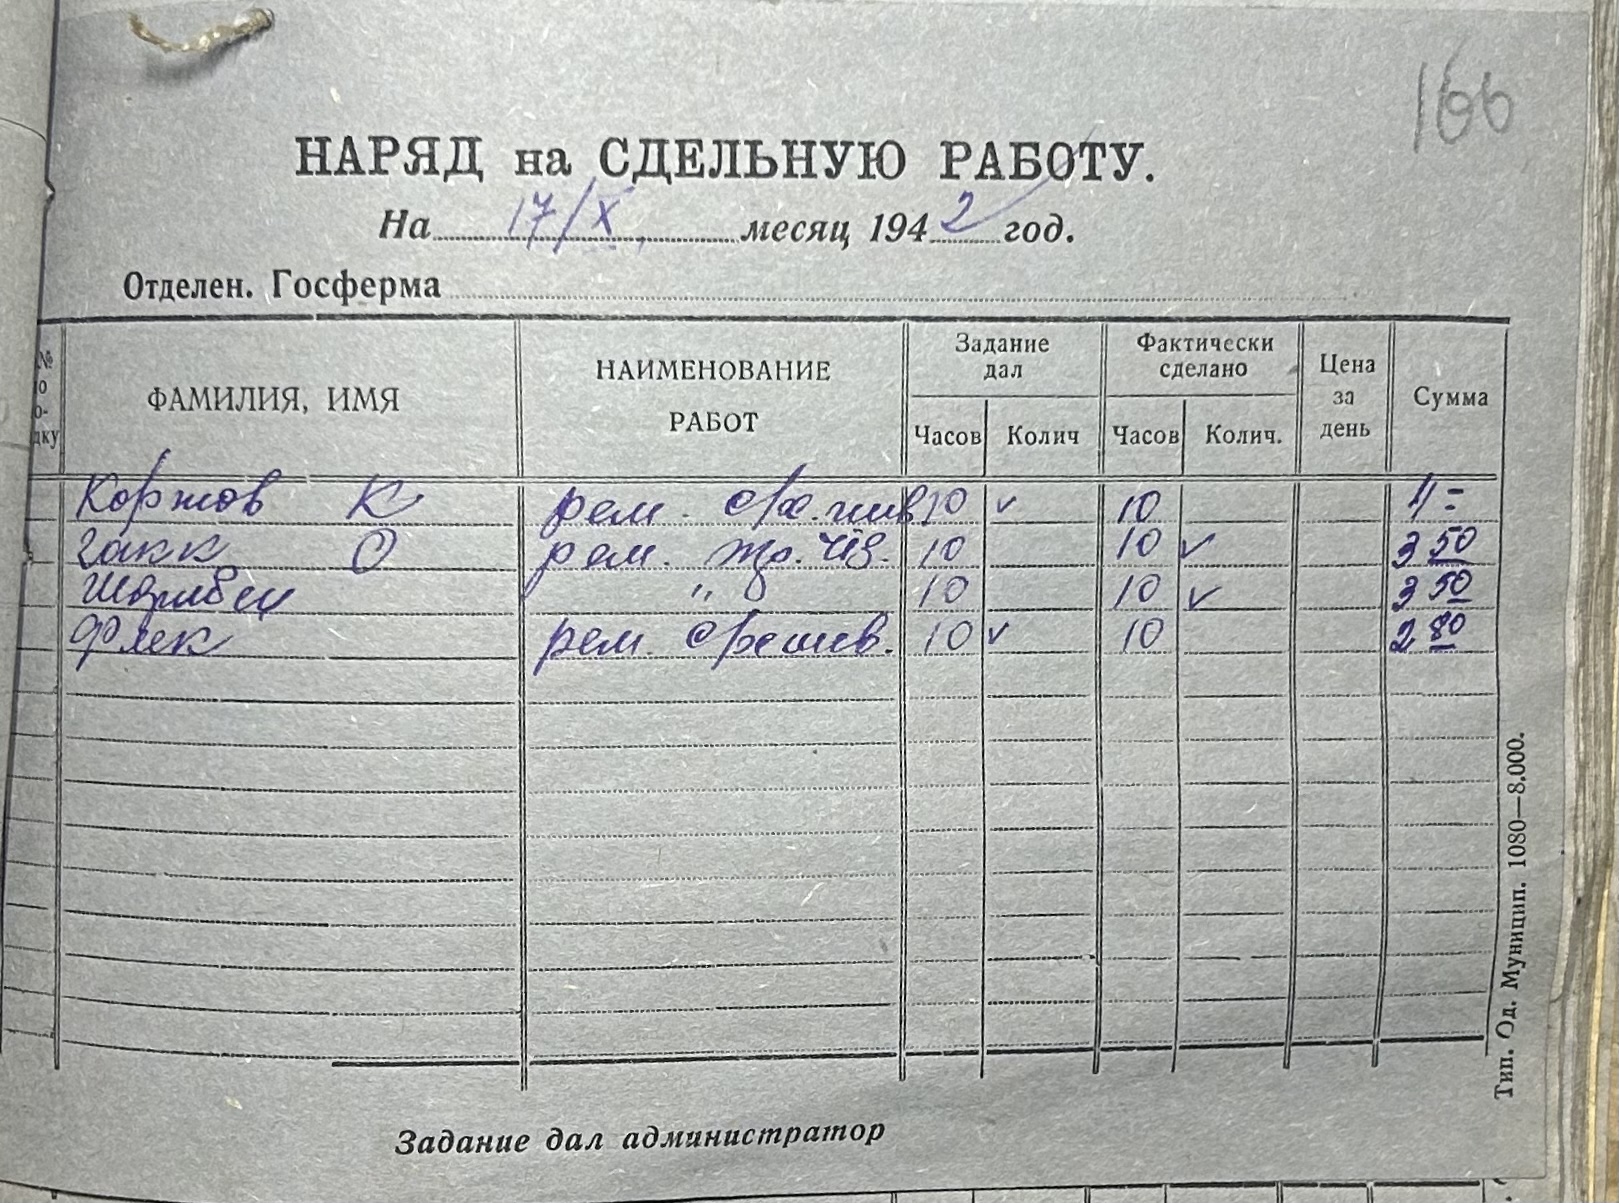 166
НАРЯД на СДЕЛЬНУЮ РАБОТУ.
На 17/X месяц 1942 год.
Отделен. Госферма
№ ФАМИЛИЯ, ИМЯ НАИМЕНОВАНИЕ РАБОТ Задание дал Часов Колич Фактически сделано Часов Колич. Цена за день Сумма
Коржов К рем. 10 ✓ 10 4 =
Закк О рем. 10 10 ✓ 3 50
" 10 10 ✓ 3 50
Флек рем. 10 ✓ 10 2 80
Задание дал администратор
Тип. Од. Муницип. 1080—8.000.